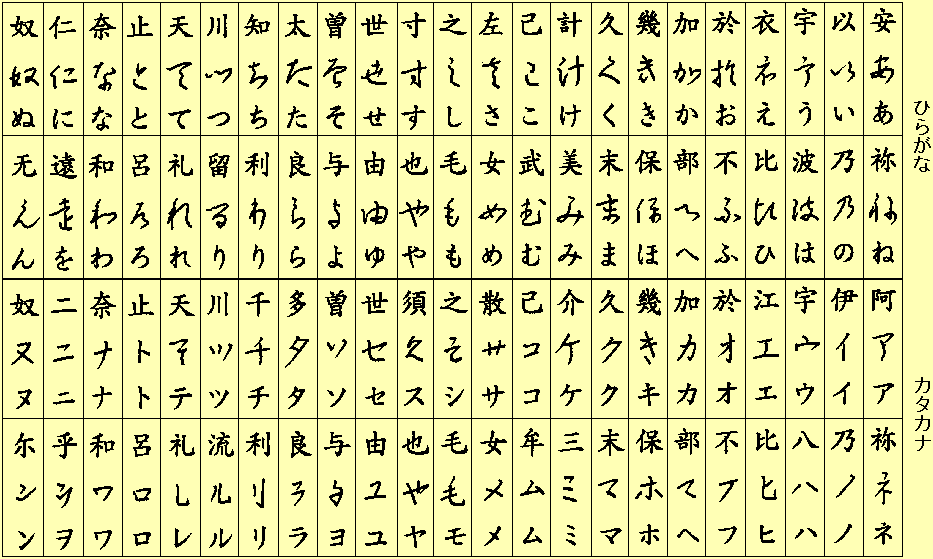 ひらがな
安 あ あ
以 い い
宇 う う
衣 え え
於 お お
加 か か
幾 き き
久 く く
計 け け
己 こ こ
左 さ さ
之 し し
寸 す す
世 せ せ
曽 そ そ
太 た た
知 ち ち
川 つ つ
天 て て
止 と と
奈 な な
仁 に に
奴 ぬ ぬ
祢 ね ね
乃 の の
波 は は
比 ひ ひ
不 ふ ふ
部 へ へ
保 ほ ほ
末 ま ま
美 み み
武 む む
女 め め
毛 も も
也 や や
由 ゆ ゆ
与 よ よ
良 ら ら
利 り り
留 る り
礼 れ れ
呂 ろ ろ
和 わ わ
遠 を を
无 ん ん
カタカナ
阿 ア ア
伊 イ イ
宇 ウ ウ
江 エ エ
於 オ オ
加 カ カ
幾 き キ
久 ク ク
介 ケ ケ
己 コ コ
散 サ サ
之 そ シ
須 久 ス
世 セ セ
曽 ソ ソ
多 タ タ
千 チ チ
川 ツ ツ
天 テ テ
止 ト ト
奈 ナ ナ
二 ニ ニ
奴 ヌ ヌ
祢 ネ ネ
乃 ノ ノ
八 ハ ハ
比 ヒ ヒ
不 フ フ
部 て ヘ
保 ホ ホ
末 マ マ
三 ミ ミ
牟 ム ム
女 メ メ
毛 毛 モ
也 や ヤ
由 ユ ユ
与 よ ヨ
良 ラ ラ
利 リ リ
流 ル ル
礼 し レ
呂 ロ ロ
和 ワ ワ
乎 ヲ ヲ
尓 ン ン